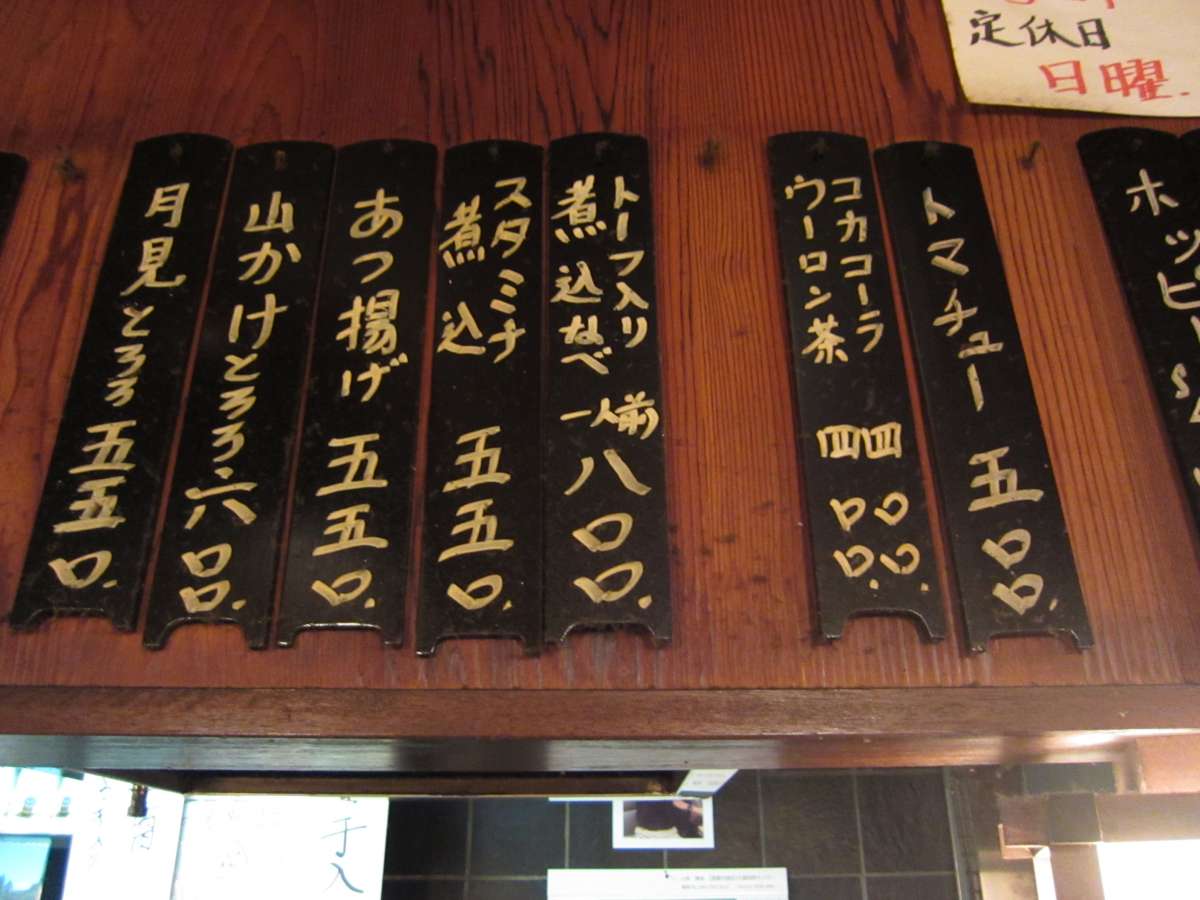 定休日
日曜.
ホッピー
トマチュー 五〇〇.
コカコーラ 四〇〇.
ウーロン茶 四〇〇.
トーフ入り
煮込なべ 一人前 八〇〇.
スタミナ
煮込 五五〇.
あつ揚げ 五五〇.
山かけとろろ 六〇〇.
月見とろろ 五五〇.